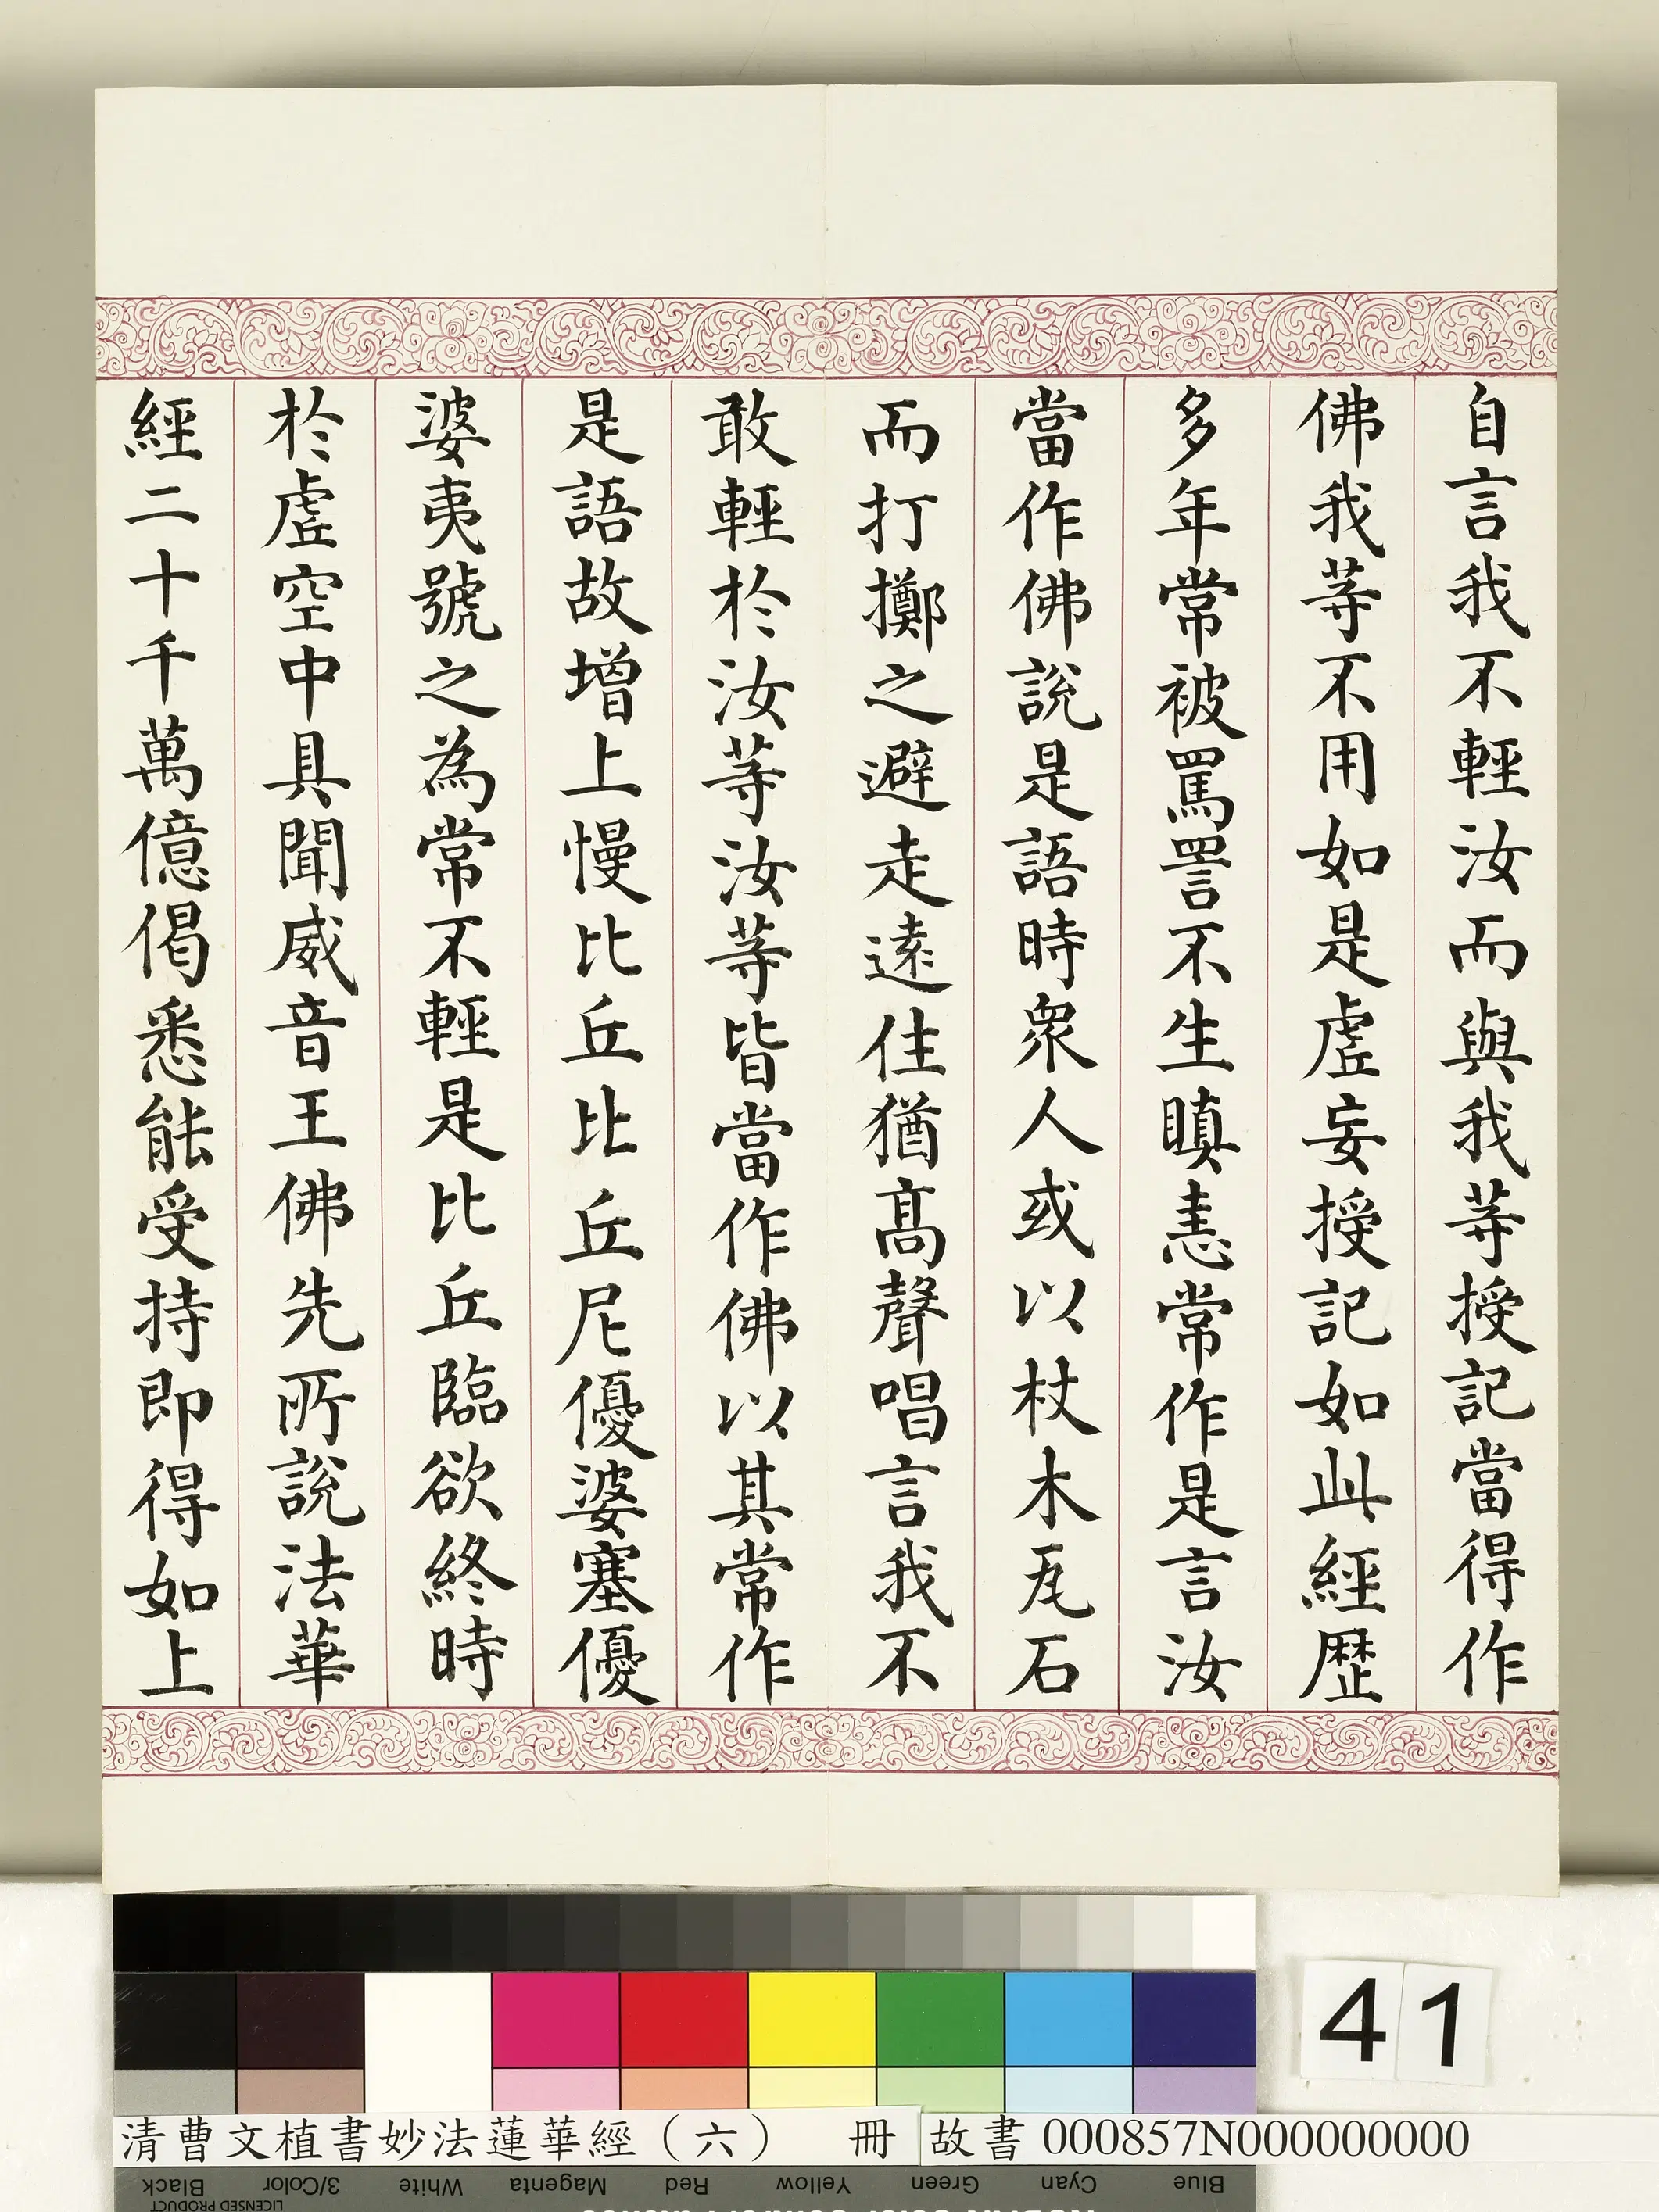 自言我不輕汝而與我等授記當得作
佛我等不用如是虛妄授記如此經歷
多年常被罵詈不生瞋恚常作是言汝
當作佛說是語時衆人或以杖木瓦石
而打擲之避走遠住猶高聲唱言我不
敢輕於汝等汝等皆當作佛以其常作
是語故增上慢比丘比丘尼優婆塞優
婆夷號之為常不輕是比丘臨欲終時
於虛空中具聞威音王佛先所說法華
經二十千萬億偈悉能受持即得如上
41
清曹文植書妙法蓮華經（六） 冊 故書 000857N000000000
Black 3/Color White Magenta Red Yellow Green Cyan Blue
LICENSED PRODUCT